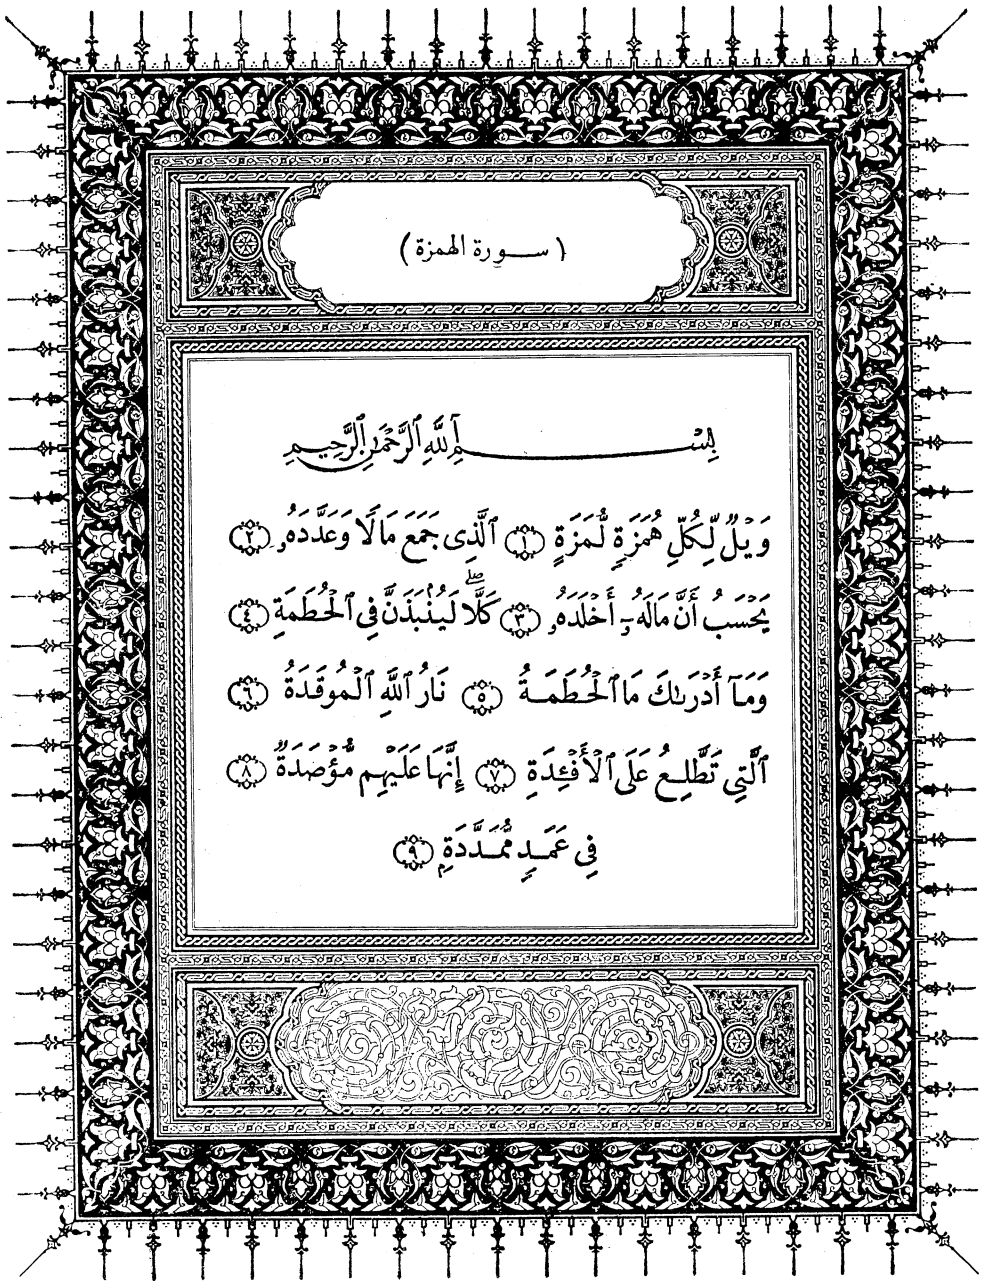 ( سورة الهمزة )
بِسْمِ ٱللَّهِ ٱلرَّحْمَٰنِ ٱلرَّحِيمِ
وَيْلٌ لِّكُلِّ هُمَزَةٍ لُّمَزَةٍ ١ ٱلَّذِى جَمَعَ مَالًا وَعَدَّدَهُۥ ٢
يَحْسَبُ أَنَّ مَالَهُۥٓ أَخْلَدَهُۥ ٣ كَلَّا ۖ لَيُنۢبَذَنَّ فِى ٱلْحُطَمَةِ ٤
وَمَآ أَدْرَىٰكَ مَا ٱلْحُطَمَةُ ٥ نَارُ ٱللَّهِ ٱلْمُوقَدَةُ ٦
ٱلَّتِى تَطَّلِعُ عَلَى ٱلْأَفْـِٔدَةِ ٧ إِنَّهَا عَلَيْهِم مُّؤْصَدَةٌ ٨
فِى عَمَدٍ مُّمَدَّدَةٍۭ ٩